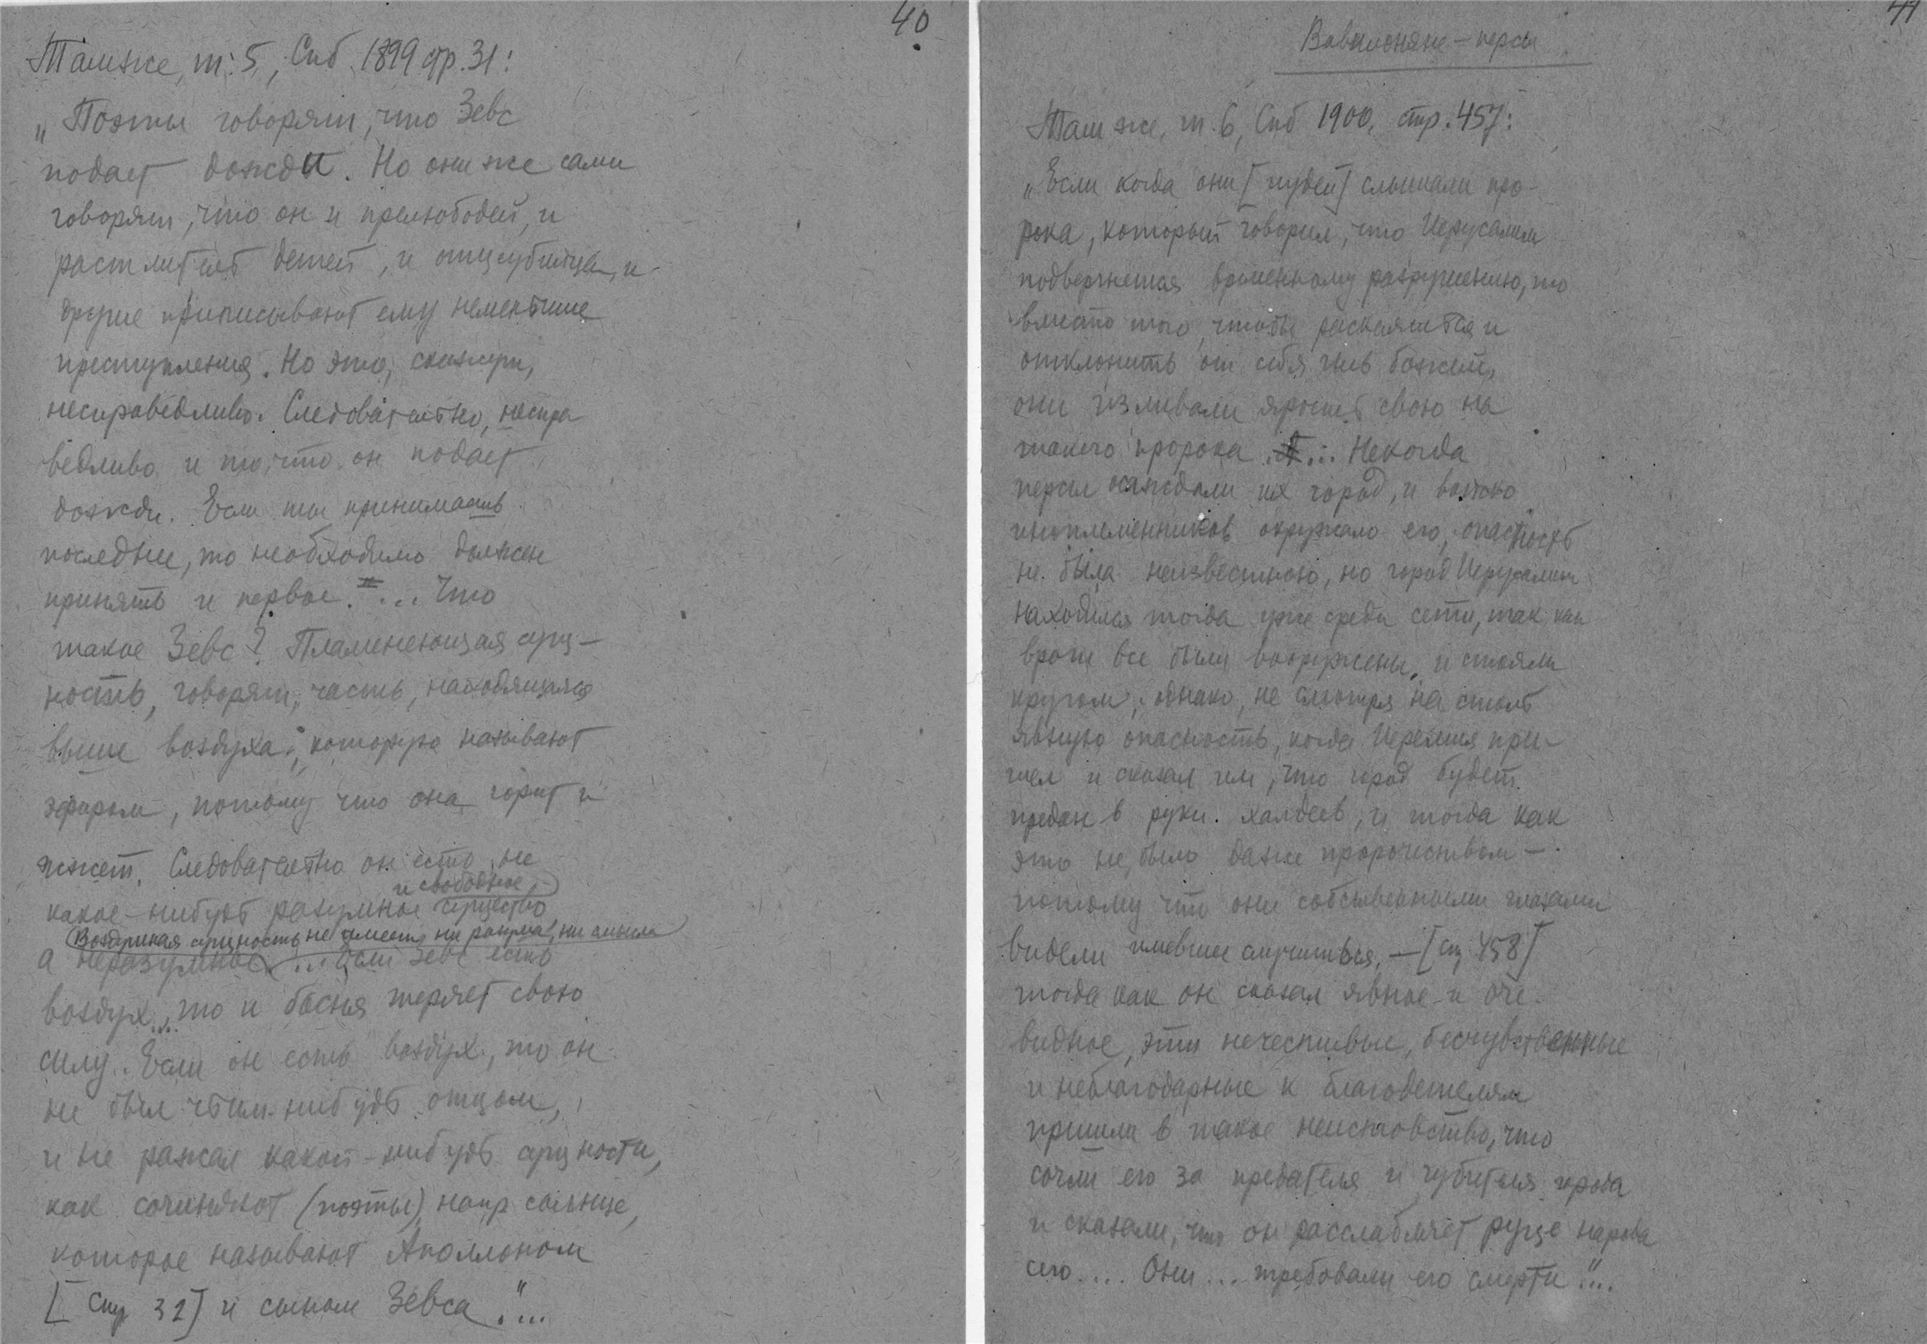 40
Там же, т. 5, Спб. 1899 стр. 31:
„Поэты говорят, что Зевс
подает дожди. Но они же сами
говорят, что он и прелюбодей, и
растлитель детей, и отцеубийца, и
другие приписывают ему немекшие
преступления. Но это, скажут,
несправедливо. Следовательно, неспра
ведливо и то, что он подает
дожди. Если ты принимаешь
последнее, то необходимо должен
принять и первое. ... Что
такое Зевс? Пламенеющая сущ-
ность, говорят, часть, находящаяся
выше воздуха, которую называют
эфиром, потому что она горит и
жжет. Следовательно он есть не
и свободное
какое-нибудь разумное существо
Воздушная сущность не имеет ни разума, ни смысла
а неразумное ... Если Зевс есть
воздух, то и басня теряет свою
силу. Если он есть воздух, то он
не был чьим-нибудь отцом,
и не рожал какой-нибудь сущности,
как сочиняют (поэты), напр солнце,
которое называют Аполлоном
[стр 32] и сыном Зевса."...
41
Вавилоняне – персы
Там же, т. 6, Спб 1900, стр. 457:
„Если когда они [иудеи] слышали про-
рока, который говорил, что Иерусалим
подвергнется временному разрушению, то
вместо того, чтобы раскаяться и
отклонить от себя гнев божий,
они изливали ярость свою на
такого пророка .... Некогда
персы осаждали их город, и войско
иноплеменников окружало его, опасность
не была неизвестною, но город Иерусалим
находился тогда уже среди сети, так как
враги все были вооружены и стояли
кругом; однако, не смотря на столь
явную опасность, когда Иеремия при-
шел и сказал им, что город будет
предан в руки халдеев, и тогда как
это не было даже пророчеством –
потому что они собственными глазами
видели имевшее случиться, – [стр 458]
тогда как он сказал явное и оче-
видное, эти нечестивые, бесчувственные
и неблагодарные к благодетелям
пришли в такое неистовство, что
сочли его за предателя и губителя города
и сказали, что он расслабляет руце народа
сего.... Они ... требовали его смерти."...